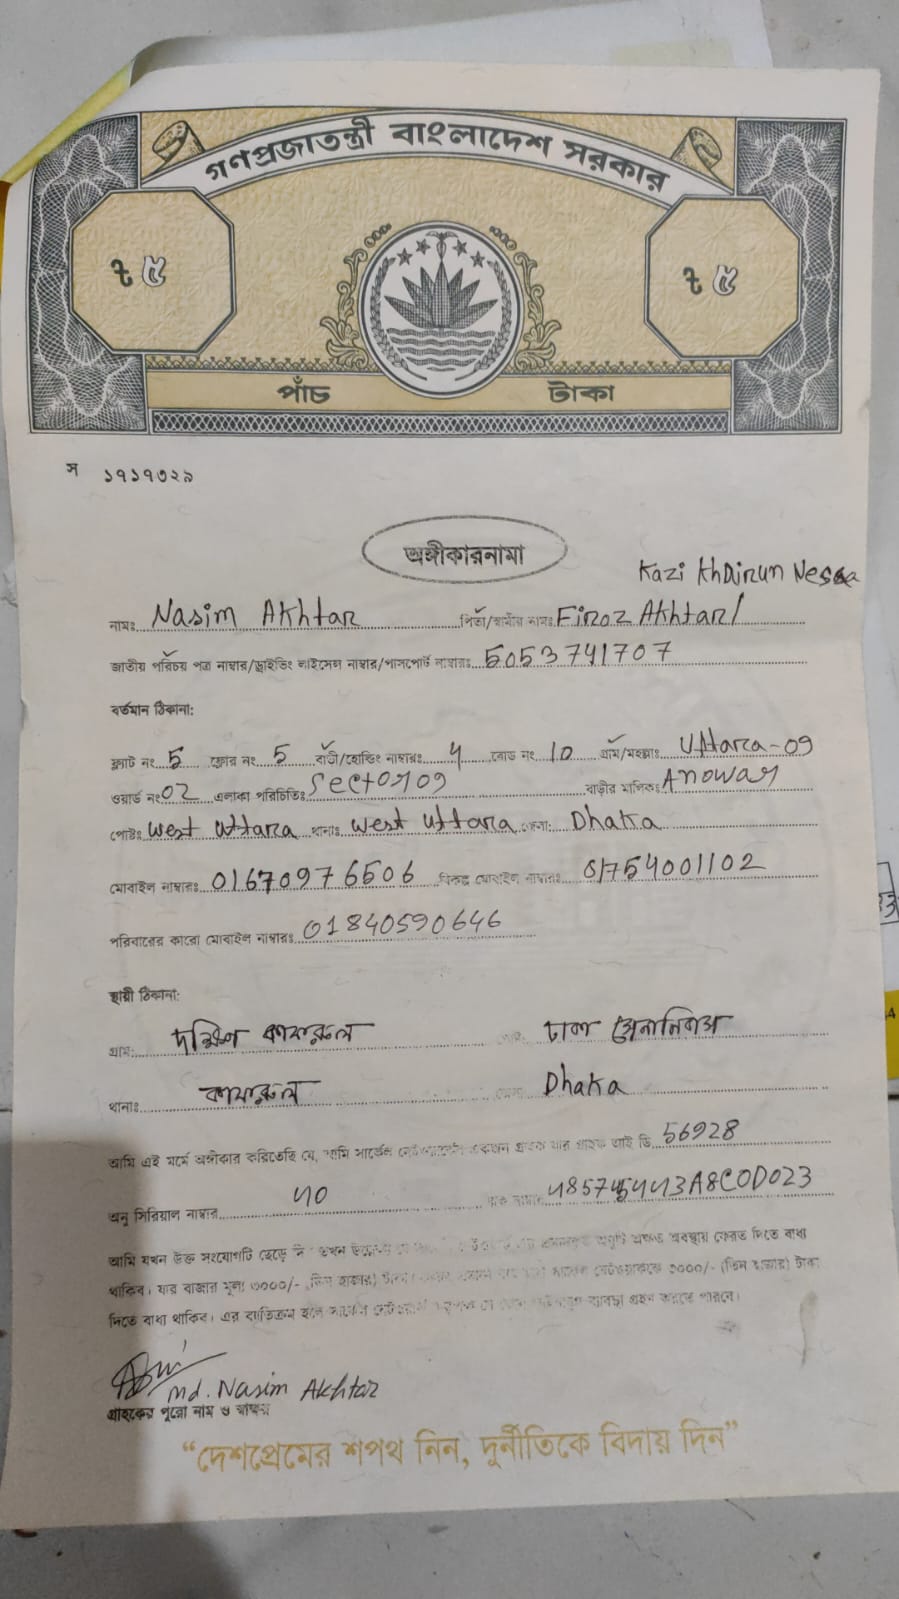 গণপ্রজাতন্ত্রী বাংলাদেশ সরকার
৳ ৫ ৳ ৫
পাঁচ টাকা
স ১৭১৭৩২৯
অঙ্গীকারনামা
Kazi Khairun Nessa
নামঃ Nasim Akhtar পিতা/স্বামীর নামঃ Firoz Akhtar/
জাতীয় পরিচয় পত্র নাম্বার/ড্রাইভিং লাইসেন্স নাম্বার/পাসপোর্ট নাম্বারঃ 5053741707
বর্তমান ঠিকানা:
ফ্ল্যাট নং 5 ফ্লোর নং 5 বাড়ী/হোল্ডিং নাম্বারঃ 4 রোড নং 10 গ্রাম/মহল্লাঃ Uttara-09
ওয়ার্ড নং 02 এলাকা পরিচিতিঃ Sector 09 বাড়ীর মালিকঃ Anowar
পোষ্টঃ West Uttara থানাঃ West Uttara জেলা: Dhaka
মোবাইল নাম্বারঃ 01670976506 বিকল্প মোবাইল নাম্বারঃ 01754001102
পরিবারের কারো মোবাইল নাম্বারঃ 01840590646
স্থায়ী ঠিকানা:
গ্রাম: দক্ষিণ কাফরুল ঢাকা সেনানিবাস
থানাঃ কাফরুল Dhaka
আমি এই মর্মে অঙ্গীকার করিতেছি যে, আমি সার্কেল নেটওয়ার্কের একজন গ্রাহক যার গ্রাহক আই ডি 56928
অনু সিরিয়াল নাম্বার 40
আমি যখন উক্ত সংযোগটি ছেড়ে তখন অক্ষত অবস্থায় ফেরত দিতে বাধ্য
থাকিব। যার বাজার মূল্য ৩০০০/- (তিন হাজার) টাকা নেটওয়ার্ককে ৩০০০/- (তিন হাজার) টাকা
দিতে বাধ্য থাকিব। এর ব্যতিক্রম হলে সার্কেল নেটওয়ার্ক ব্যবস্থা গ্রহণ করতে পারবে।
Md. Nasim Akhtar
গ্রাহকের পুরো নাম ও স্বাক্ষর
“দেশপ্রেমের শপথ নিন, দুর্নীতিকে বিদায় দিন”